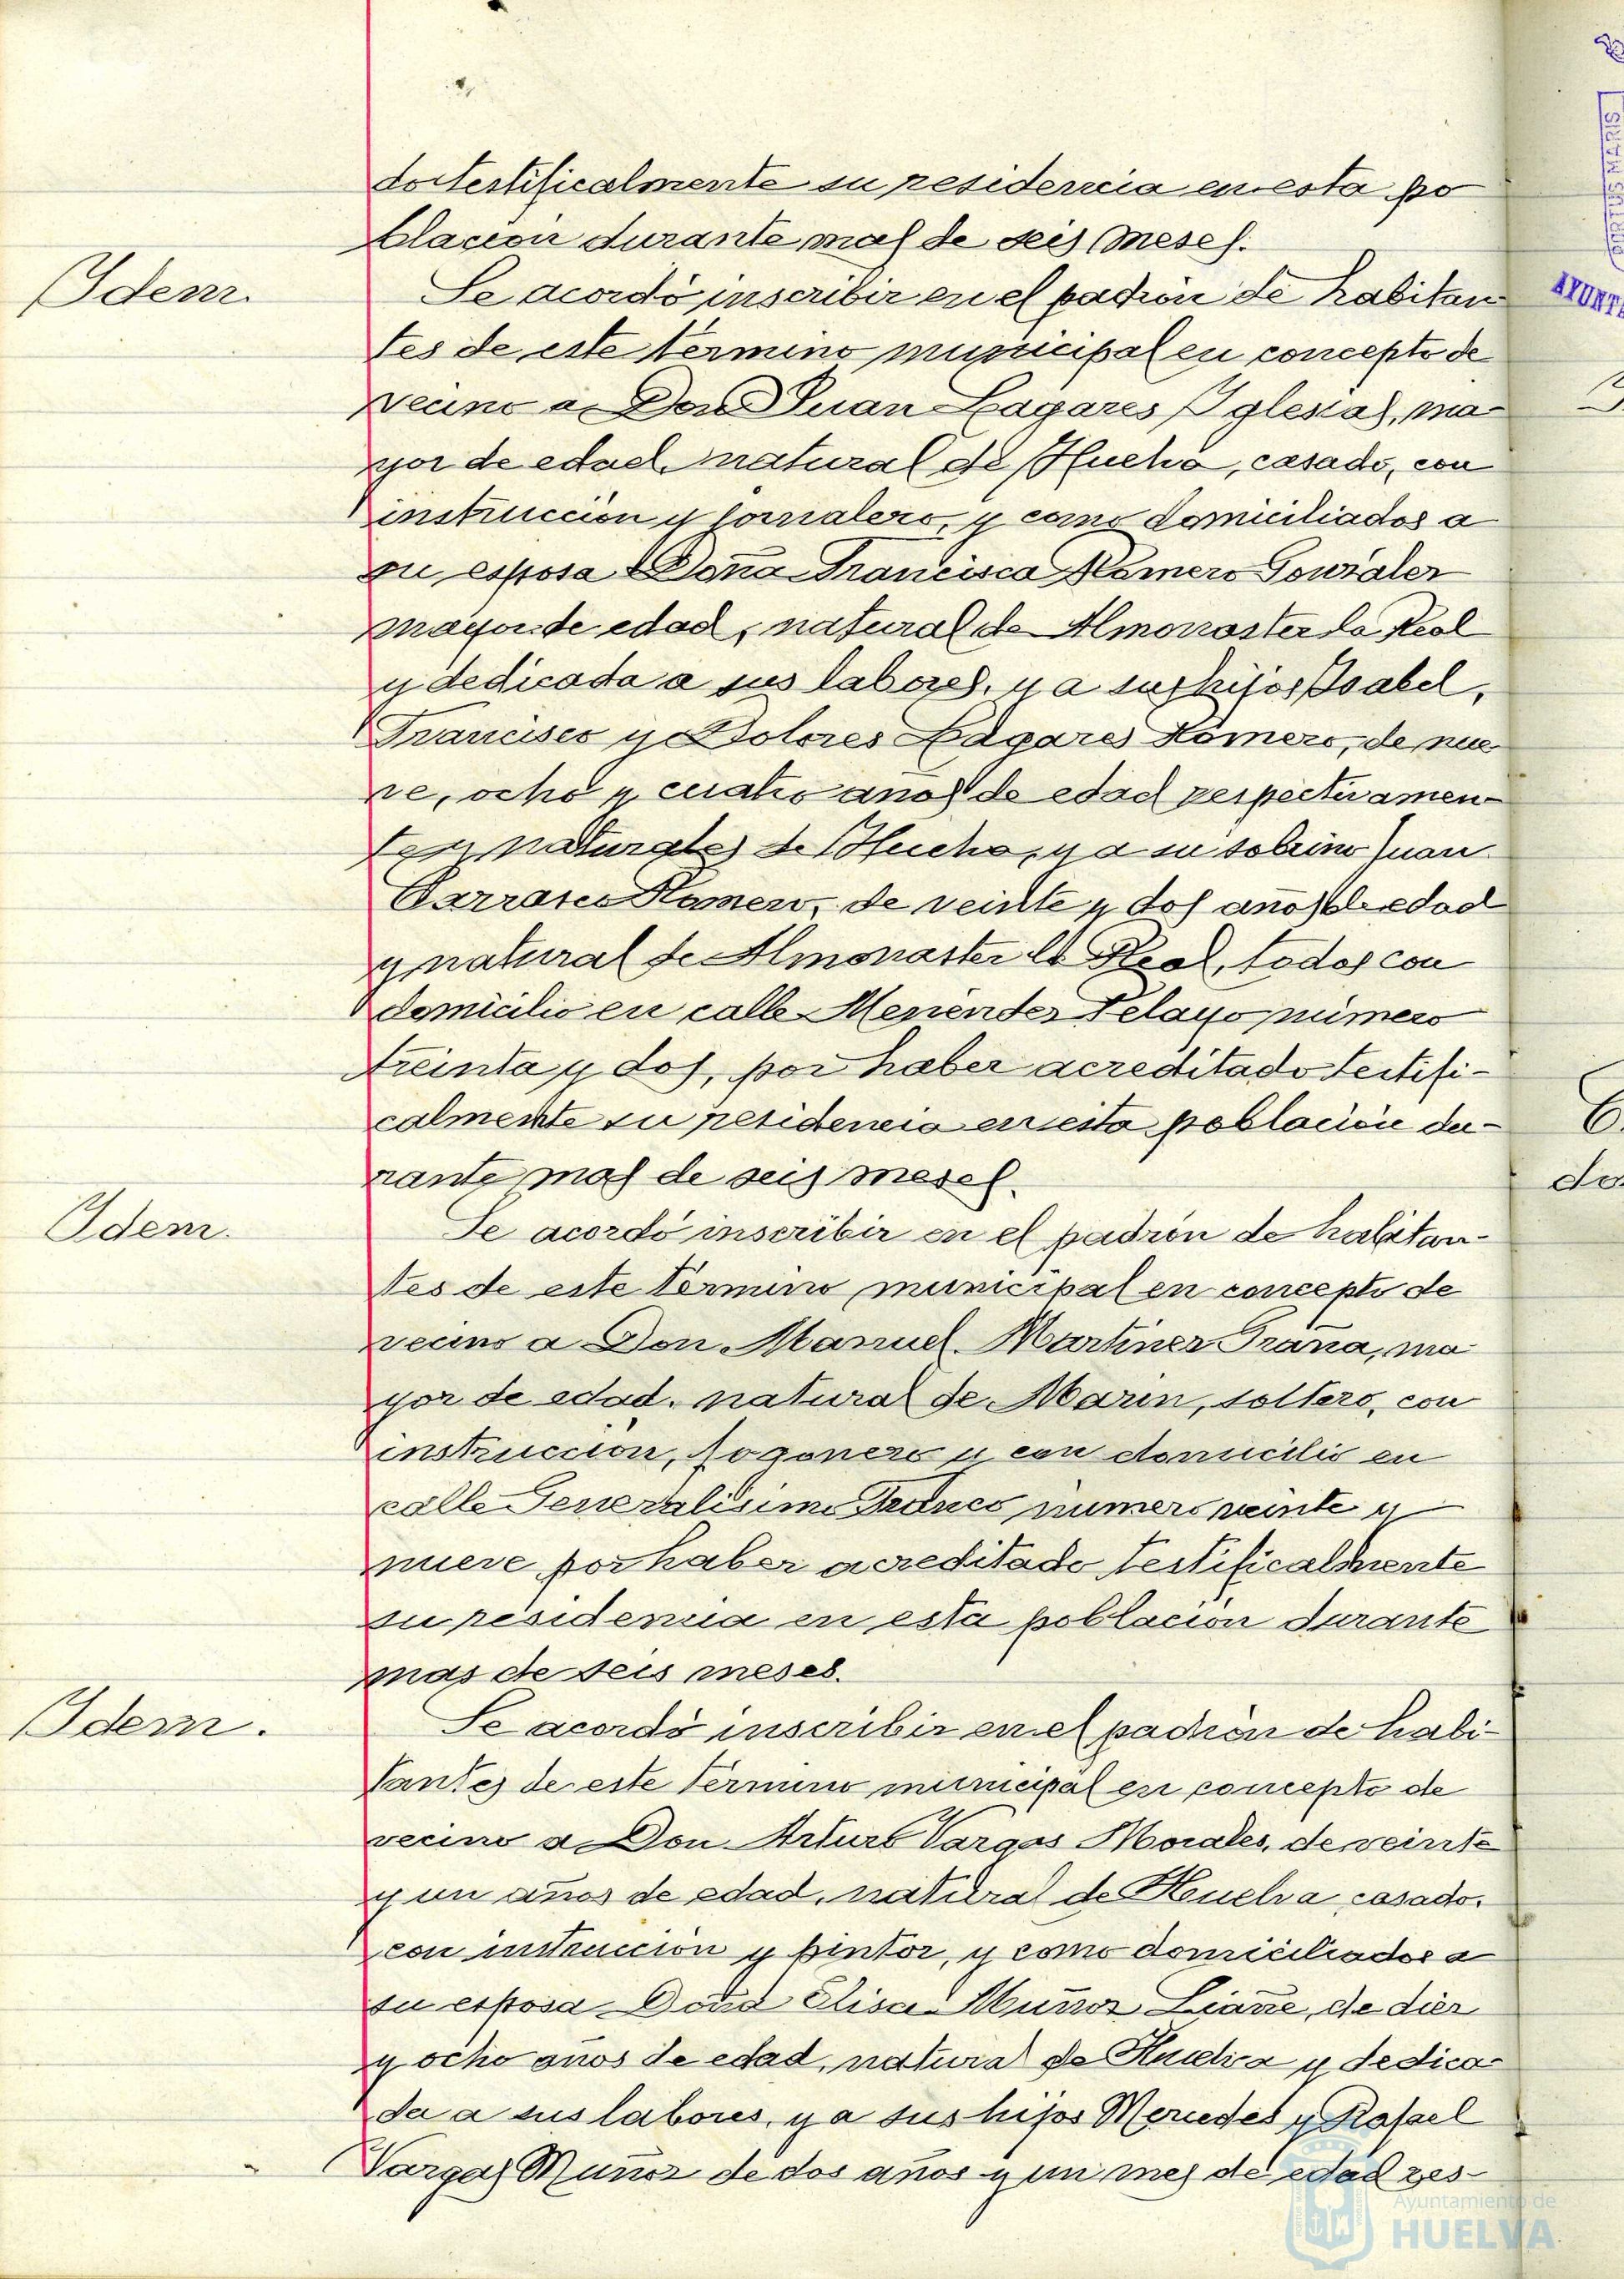 do testificalmente su residencia en esta po
blacion durante mas de seis meses.
Idem.
Se acordó inscribir en el padrón de habitan
tes de este termino municipal en concepto de
vecino a Don Juan Lagares Iglesias, ma
yor de edad, natural de Huelva, casado, con
instrucción y jornalero, y como domiciliados a
su esposa Doña Francisca Romero Gonzalez
mayor de edad, natural de Almonaster la Real
y dedicada a sus labores, y a sus hijos Isabel,
Francisco y Dolores Lagares Romero, de nue
ve, ocho y cuatro años de edad respectivamen
te y naturales de Huelva, y a su sobrino Juan
Carrasco Romero, de veinte y dos años de edad
y natural de Almonaster la Real, todos con
domicilio en calle Menendez Pelayo número
treinta y dos, por haber acreditado testifi-
calmente su residencia en esta población du-
rante mas de seis meses.
Idem.
Se acordó inscribir en el padrón de habitan-
tes de este termino municipal en concepto de
vecino a Don Manuel Martinez Graña, ma
yor de edad, natural de Marin, soltero, con
instrucción, fogonero y con domicilio en
calle Generalisimo Franco numero veinte y
nueve por haber acreditado testificalmente
su residencia en esta poblacion durante
mas de seis meses.
Idem.
Se acordó inscribir en el padrón de habi-
tantes de este termino municipal en concepto de
vecino a Don Arturo Vargas Morales, de veinte
y un años de edad, natural de Huelva, casado,
con instrucción y pintor, y como domiciliados a
su esposa Doña Elisa Muñoz de diez
y ocho años de edad, natural de Huelva y dedica
da a sus labores, y a sus hijos Mercedes y Rafael
Vargas Muñoz de dos años y un mes de edad res-
Ayuntamiento de
HUELVA